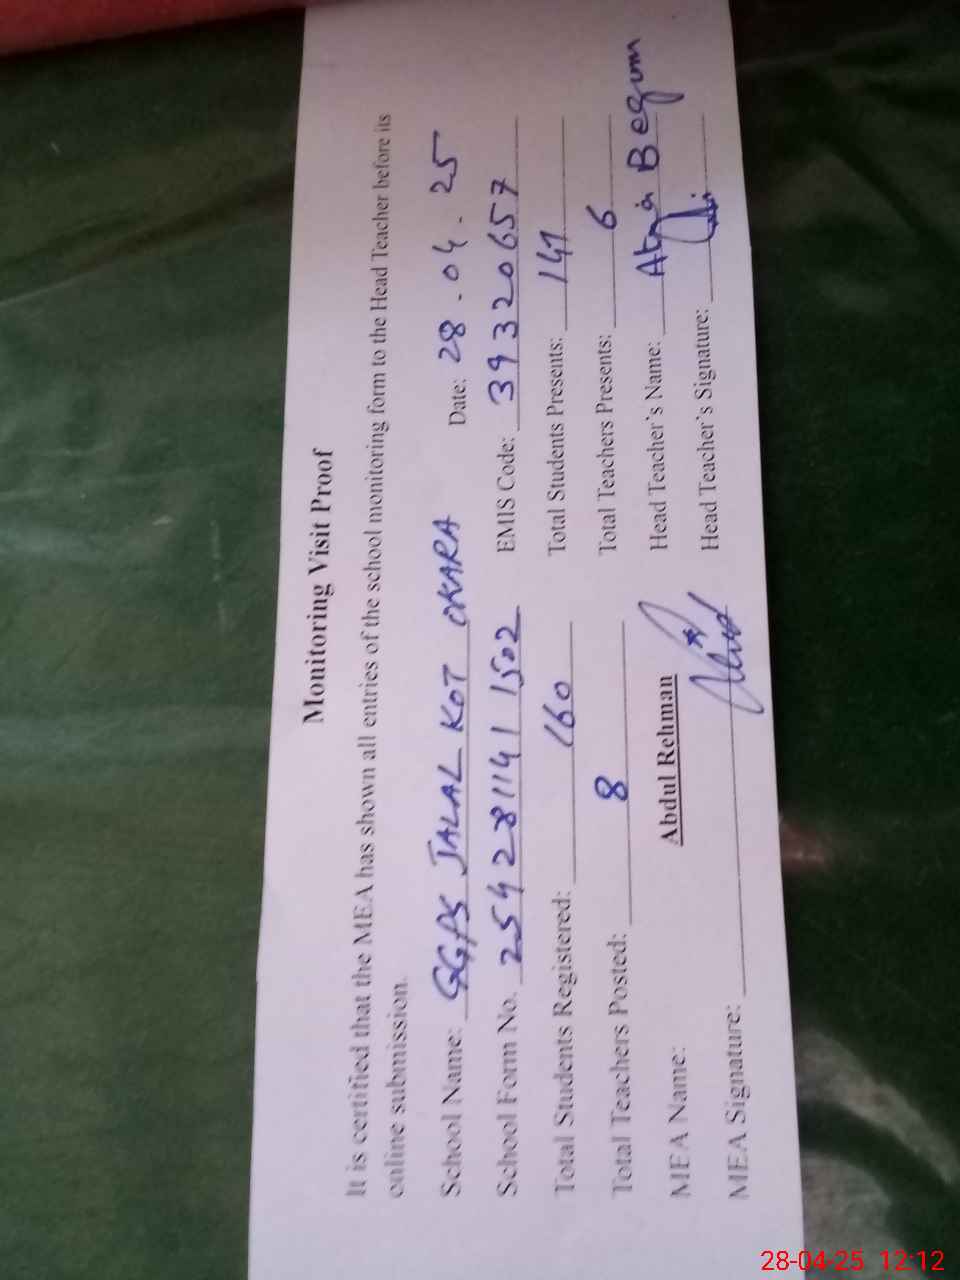 Monitoring Visit Proof
It is certified that the MEA has shown all entries of the school monitoring form to the Head Teacher before its
online submission.
School Name: GGPS JALAL KOT OKARA Date: 28-04-25
School Form No. 2542811411502 EMIS Code: 39320657
Total Students Registered: 160 Total Students Presents: 141
Total Teachers Posted: 8 Total Teachers Presents: 6
MEA Name: Abdul Rehman Head Teacher's Name: Begum
MEA Signature: Head Teacher's Signature:
28-04-25 12:12